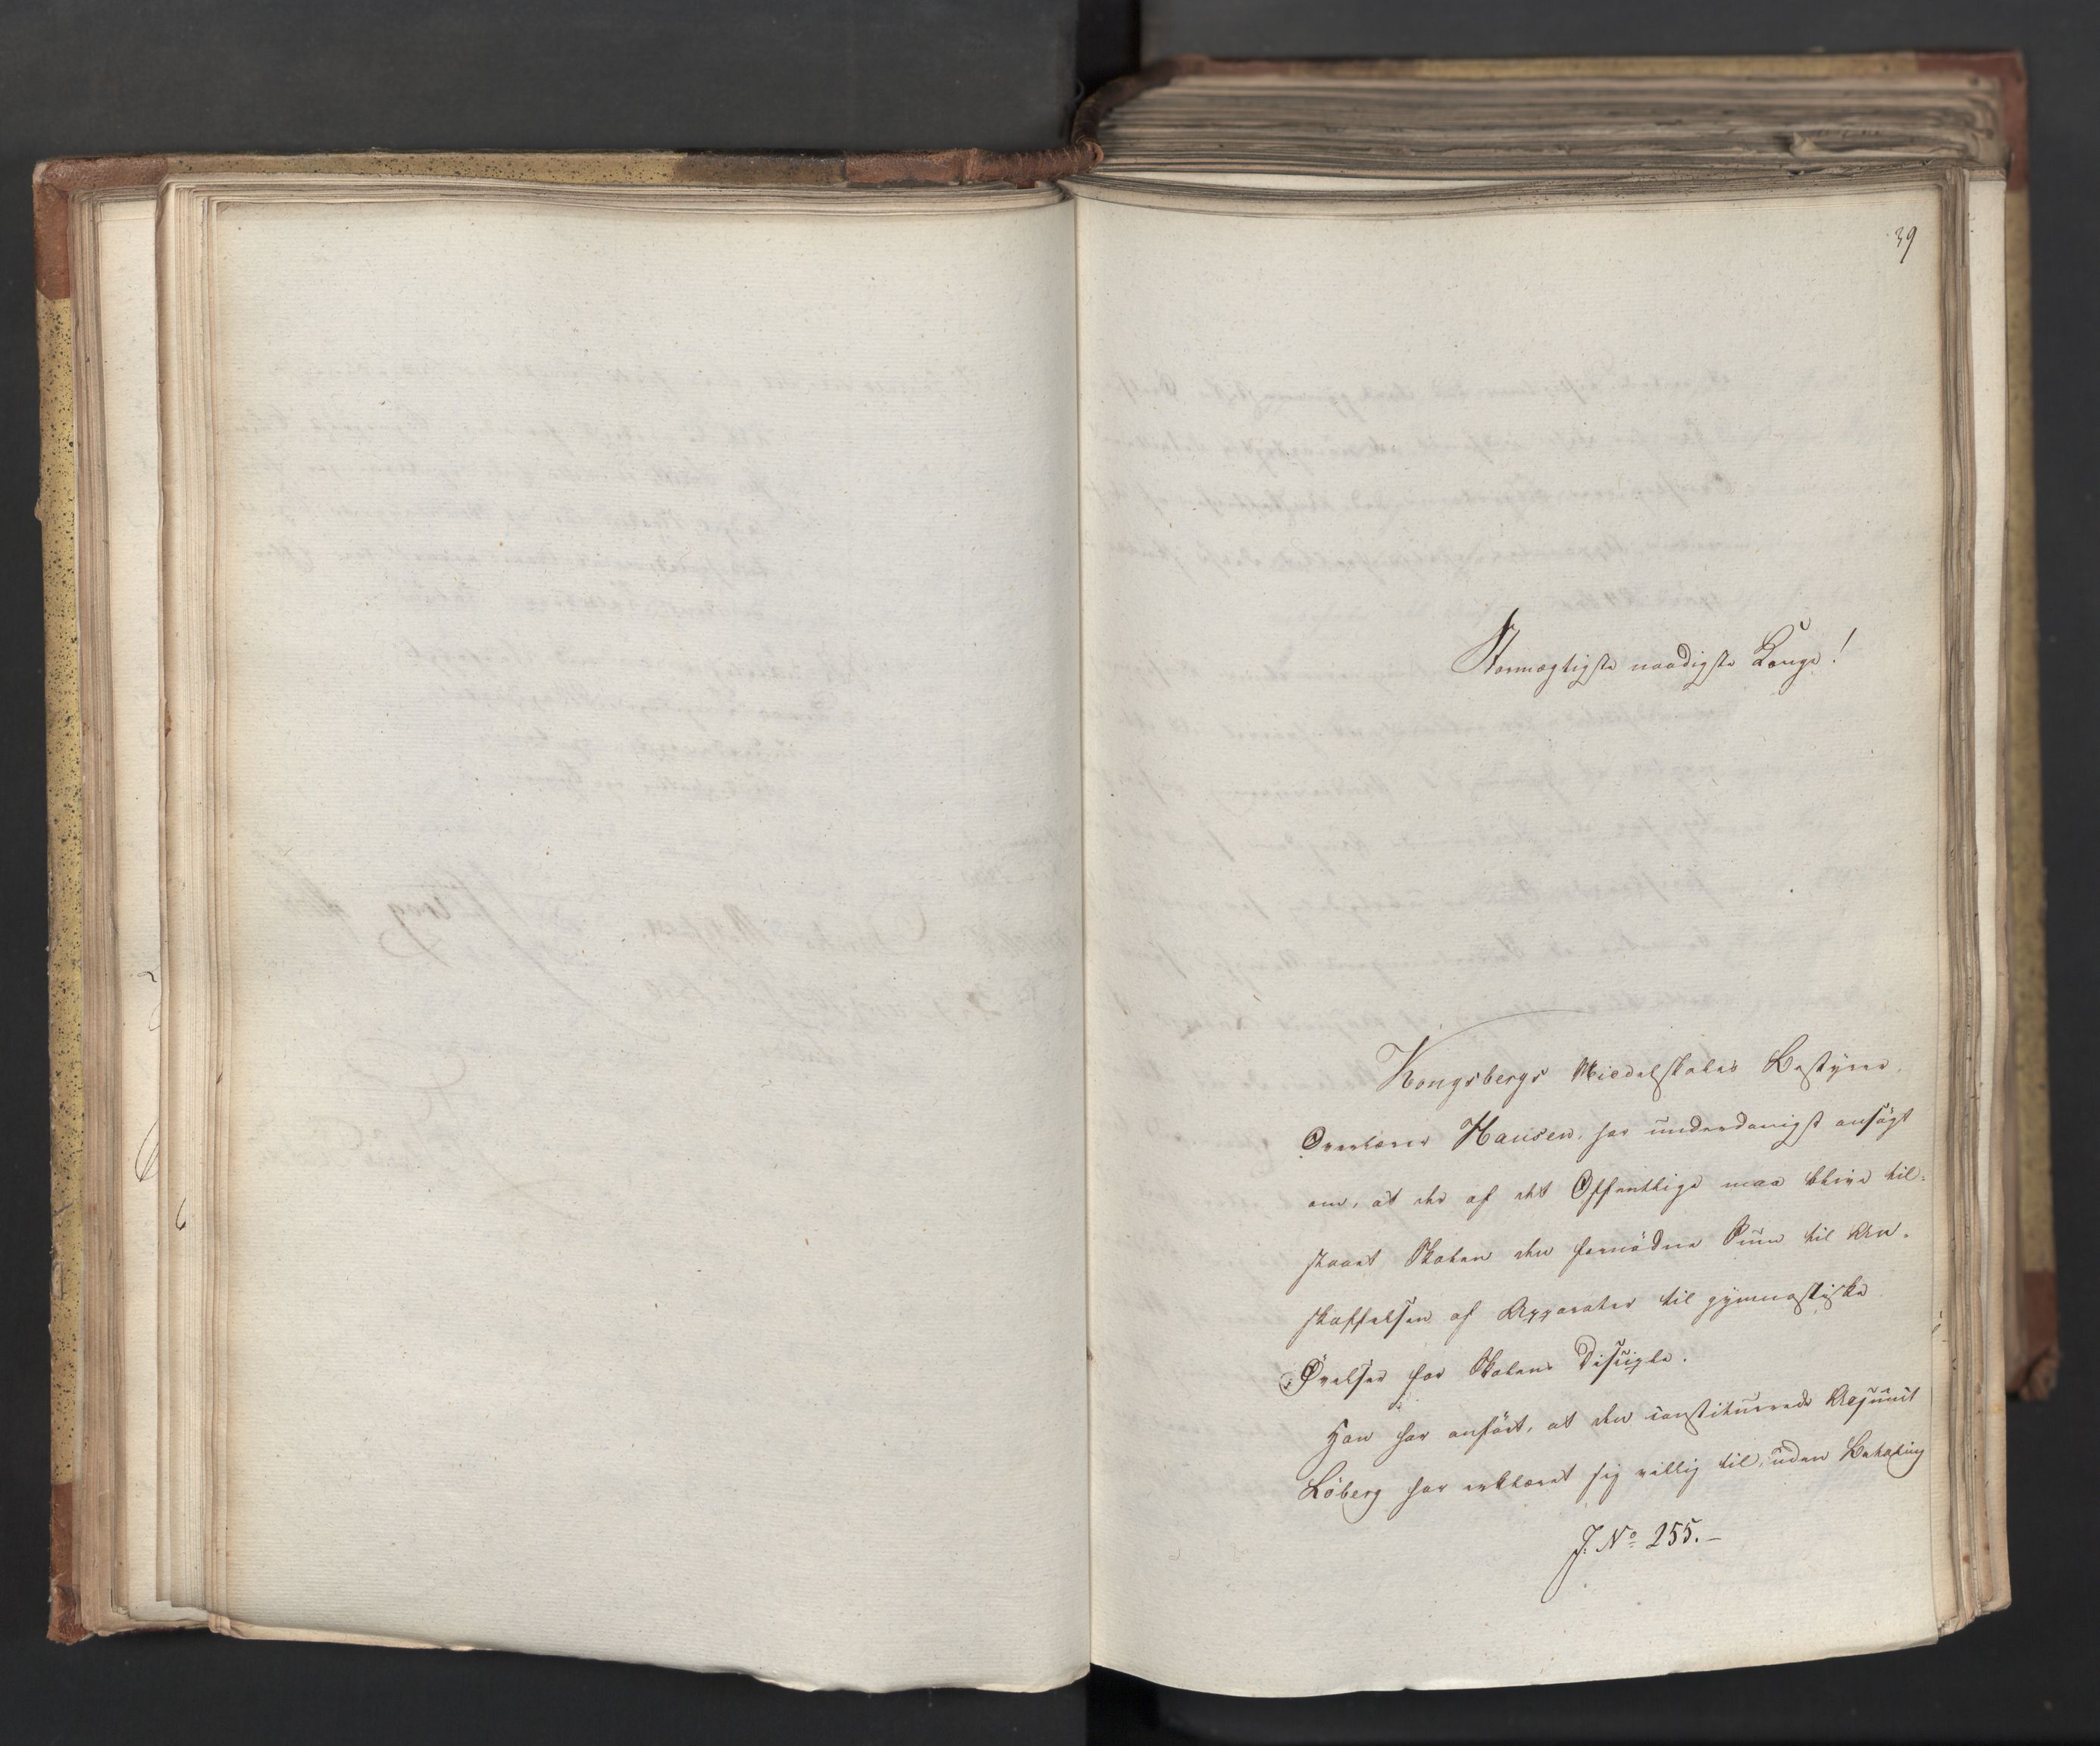 39
Stormægtigste naadigste Konge!
Kongsbergs Middelskoles Bestyrer,
Overlærer Hansen, har underdanigst ansøgt
om, at der af det Offentlige maa blive til-
staaet Skolen den fornødne Sum til An-
skaffelsen af Apparater til gymnastiske
Øvelser for Skolens Disciple.
Han har anført, at den constituerede Adjunct
Löberg har erklæret sig villig til, uden Betaling
J. No 255.-